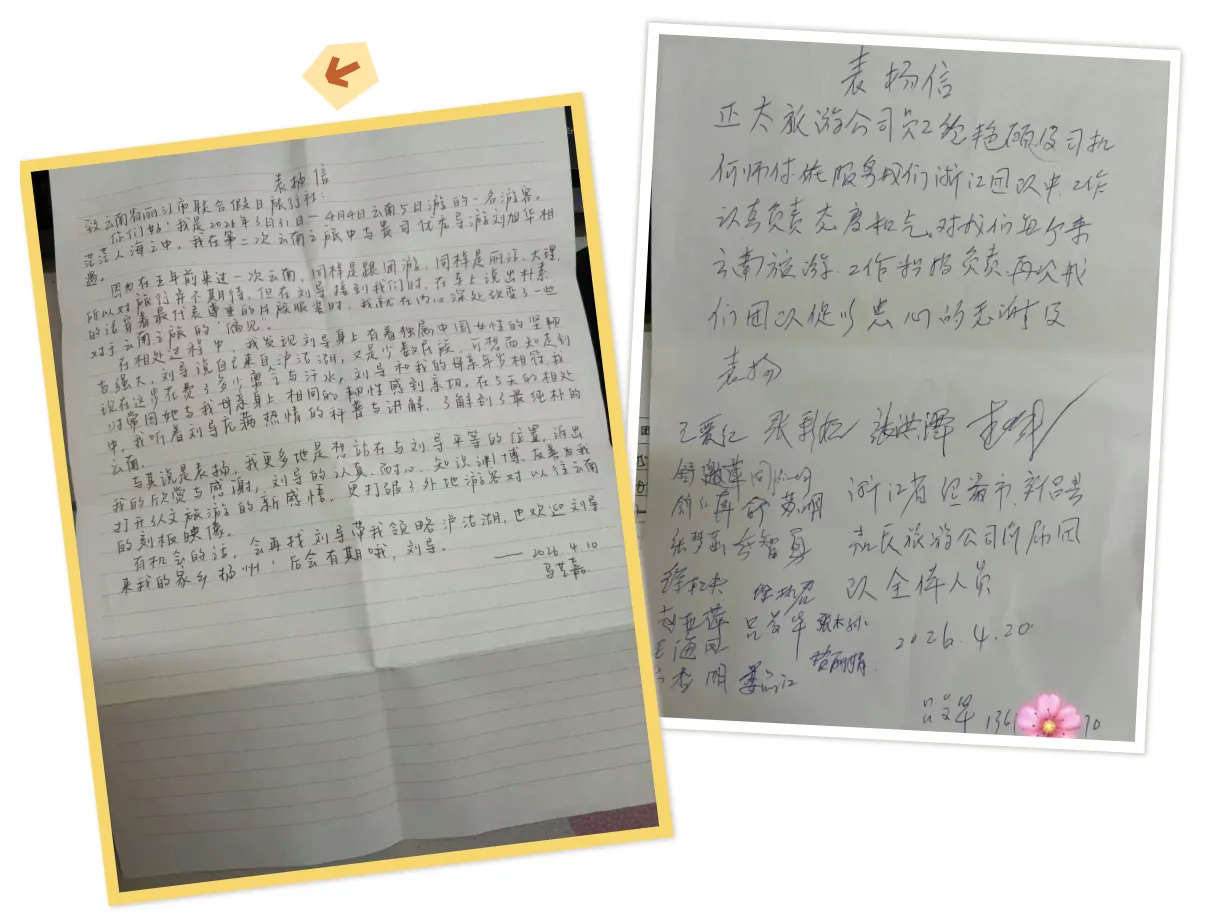 表扬信
致云南省丽江市联合假日旅行社:
你们好!我是2026年3月31日-4月4日云南5日游的一名游客。
茫茫人海之中,我在第二次云南之旅中与贵司优秀导游刘旭华相
遇。
因为在五年前来过一次云南,同样是跟团游,同样是丽江、大理,
所以对旅行并不期待,但在刘导接到我们时,在车上说出朴素
的话穿着最代表尊重的民族服装时,我就在内心深处改变了一些
对于云南之旅的"偏见"。
在相处过程中,我发现刘导身上有着独属中国女性的坚韧
与强大,刘导说自己来自泸沽湖,又是少数民族,可想而知走到
现在这步花费了多少勇气与汗水,刘导和我的母亲年岁相符,我
时常因她与我母亲身上相同的韧性感到亲切。在5天的相处
中,我听着刘导充满热情的科普与讲解,了解到了最纯朴的
云南。
与其说是表扬,我更多地是想站在与刘导平等的位置,诉出
我的欣赏与感谢,刘导的认真、耐心、知识渊博、友善为我
打开人文旅游的新感情,更打破了外地游客对以往云南
的刻板映像。
有机会的话,会再找刘导带我领略泸沽湖,也欢迎刘导
来我的家乡扬州!后会有期哦,刘导。
—— 2026.4.10
马芝嘉
表扬信
正太旅游公司员工 艳硕及司机
何师付在服务我们浙江团队中,工作
认真负责态度和气,对我们每个来
云南旅游,工作积极负责,再次我
们团队促以忠心的感谢及
表扬
王爱仁 张洪潭
浙江省绍兴市新昌县
旅游公司所属团
队全体人员
徐智勇
吕益华
2026.4.20
吕益华 136 70